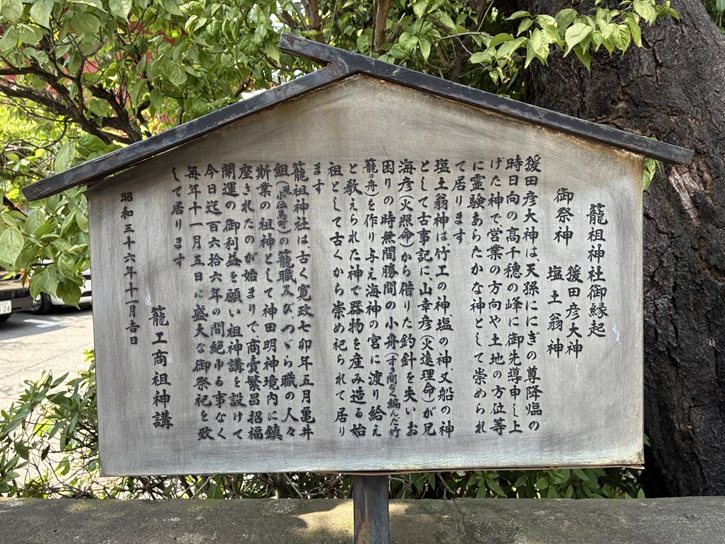 籠祖神社御縁起
御祭神 猨田彦大神
塩土翁神
猨田彦大神は天孫ににぎの尊降臨の
時日向の高千穂の峰に御先導申し上
げた神で営業の方向や土地の方位等
に霊験あらたかな神として崇められ
て居ります
塩土翁神は竹工の神塩の神又船の神
として古事記に山幸彦(火遠理命)が兄
海彦(火照命)から借りた釣針を失いお
困りの時無間勝間の小舟(すき間なく編んだ竹籠の舟)を作り与え海神の宮に渡り給え
と教えられた神で器物を産み造る始
祖として古くから崇め祀られて居り
ます
籠祖神社は古く寛政七卯年五月亀井
組(元佐久間町)の籠職及びつづら職の人々
斯業の祖神として神田明神境内に鎮
座されたのが始まりで商売繁昌招福
開運の御利益を願い祖神講を設けて
今日迄百六拾六年の間絶ゆる事なく
毎年十一月五日に盛大な御祭祀を致
して居ります
昭和三十六年十一月吉日
籠工商祖神講